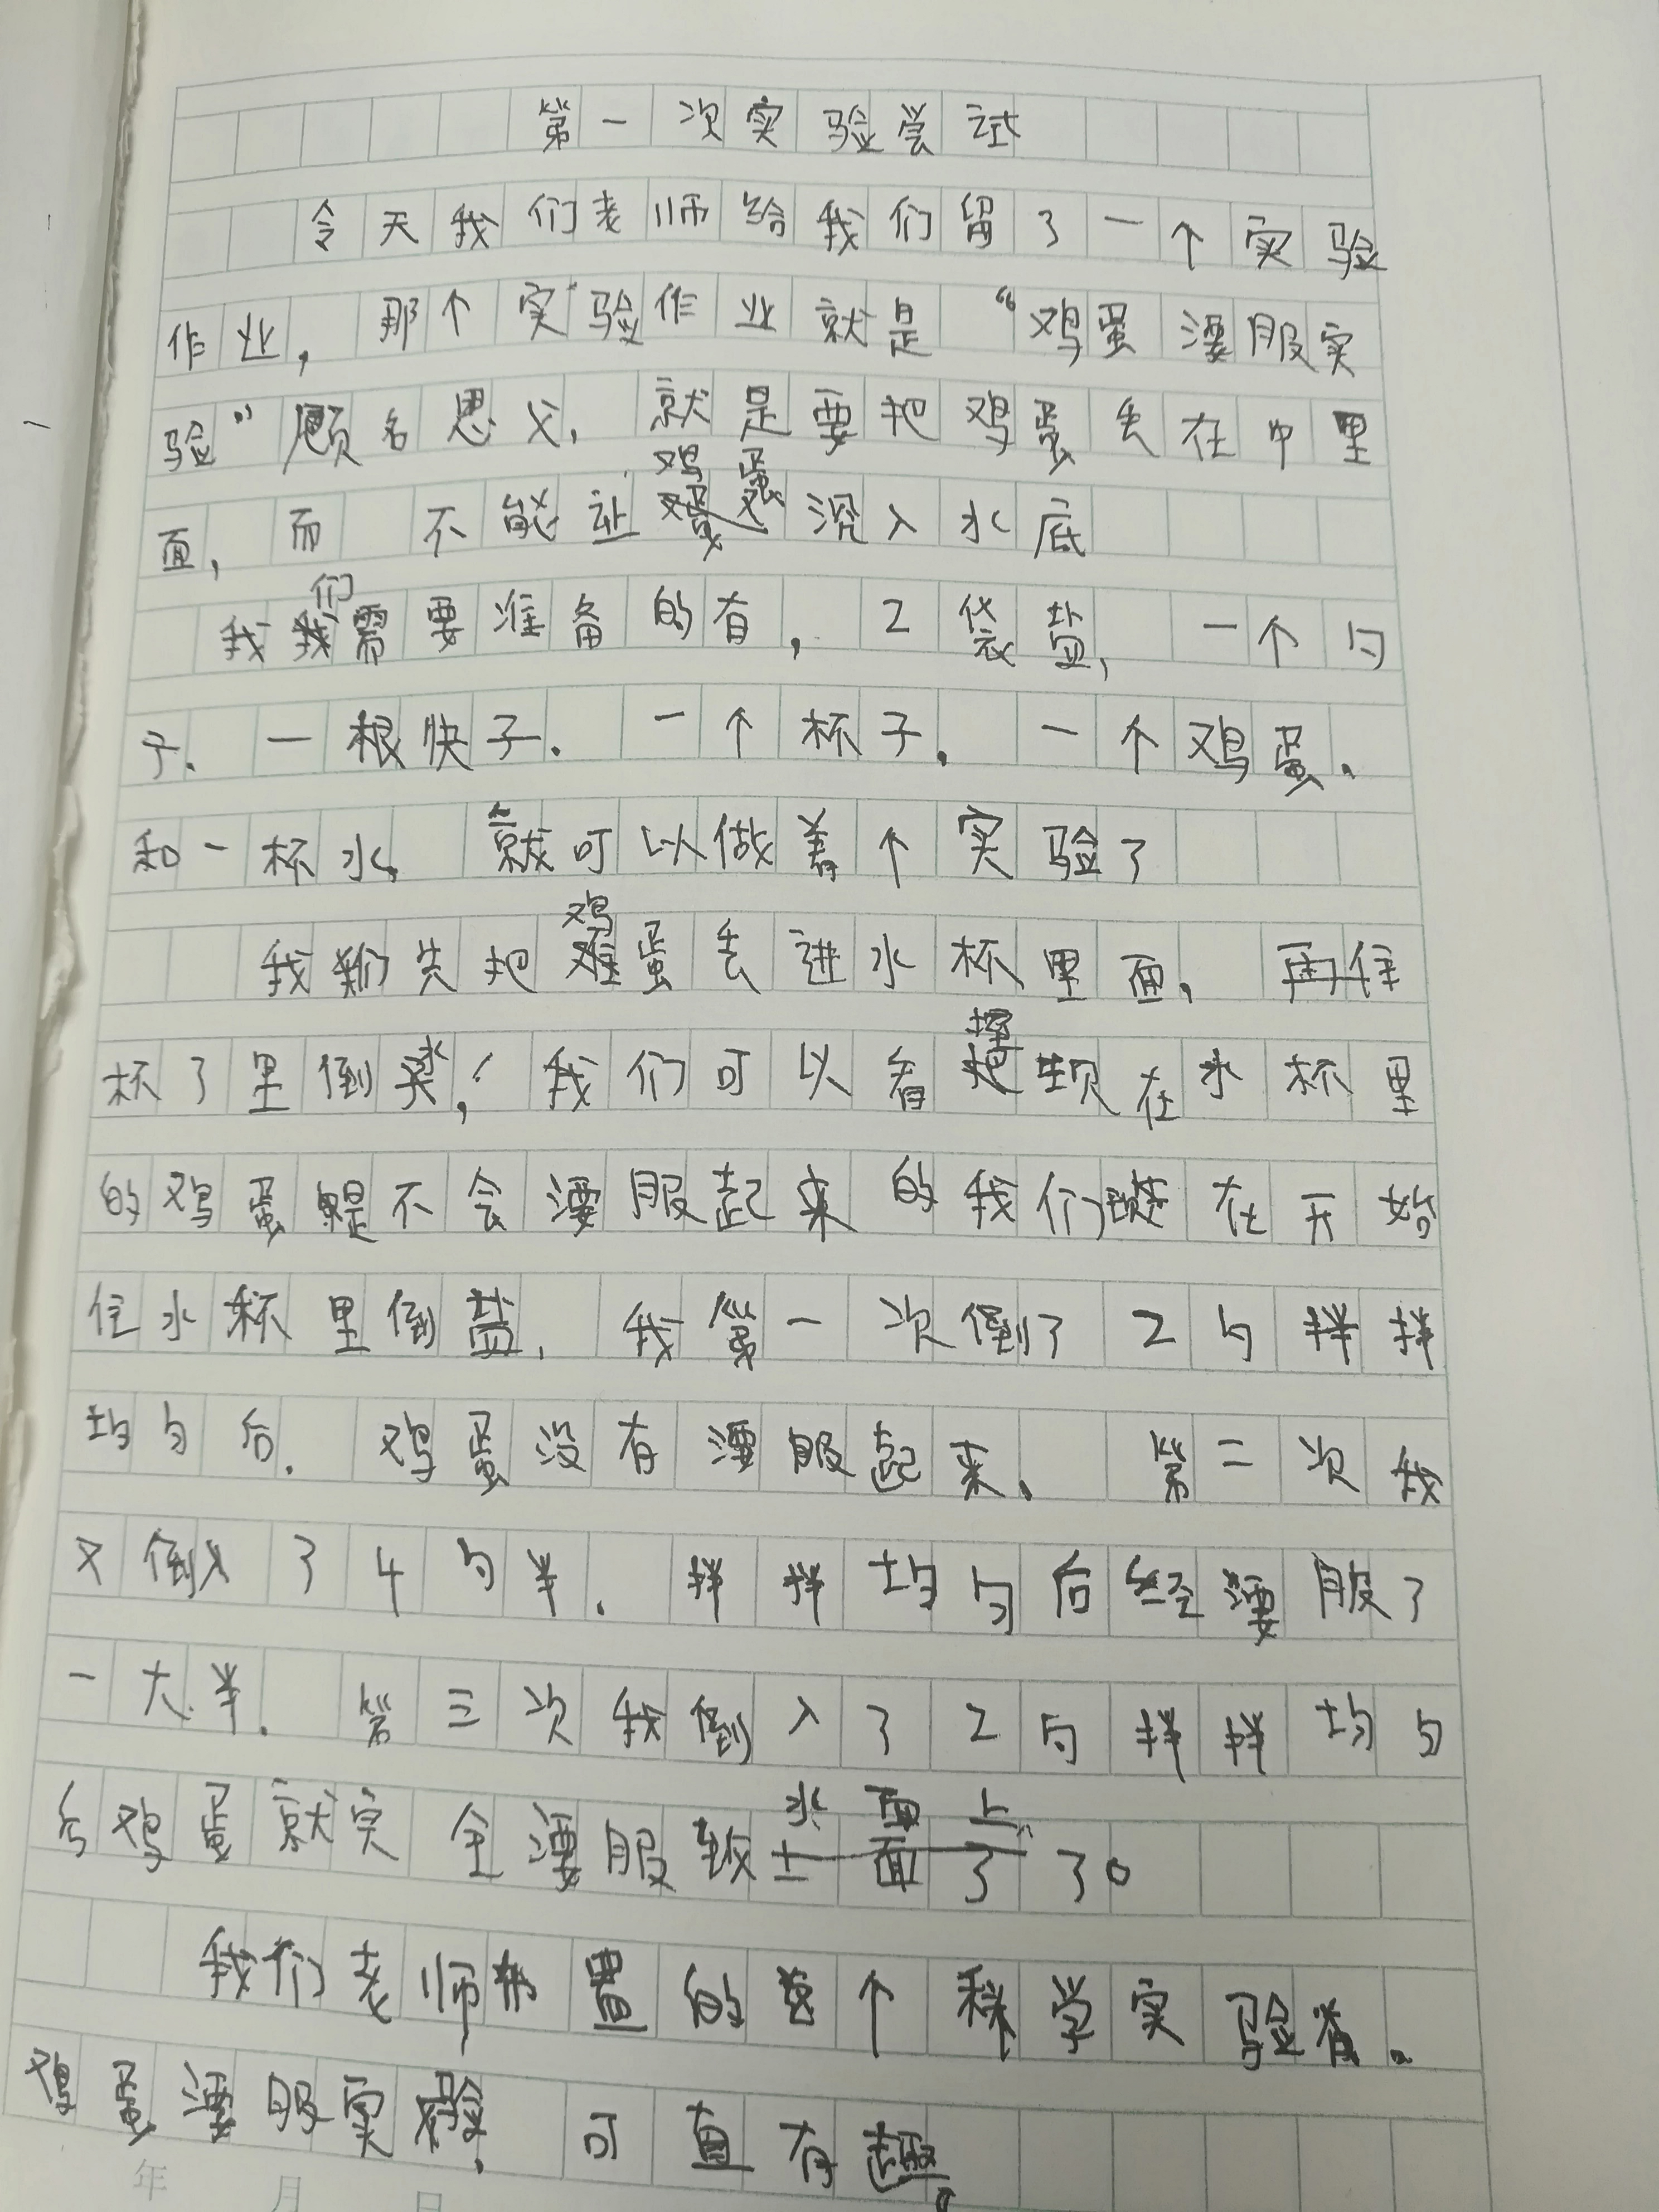 第一次实验尝试
今天我们老师给我们留了一个实验
作业，那个实验作业就是“鸡蛋漂服实
验”顾名思义，就是要把鸡蛋丢在中里
面，而不能让鸡蛋沉入水底
我们需要准备的有，2袋盐，一个勺
子、一根快子．一个杯子．一个鸡蛋．
和一杯水，就可以做着个实验了
我先把鸡蛋丢进水杯里面，再往
杯了里倒水，我们可以看 现在水杯里
的鸡蛋是不会漂服起来的我们 在开始
住水杯里倒盐，我第一次倒了2勺拌拌
均匀后．鸡蛋没有漂服起来．第二次我
又倒入了4勺半．拌拌均匀后经漂服了
一大半．第三次我倒入了2勺拌拌均匀
后鸡蛋就完全漂服致水面上了。
我们老师布置的 个科学实验 ．
鸡蛋漂服实验，可真有趣。
年 月 日